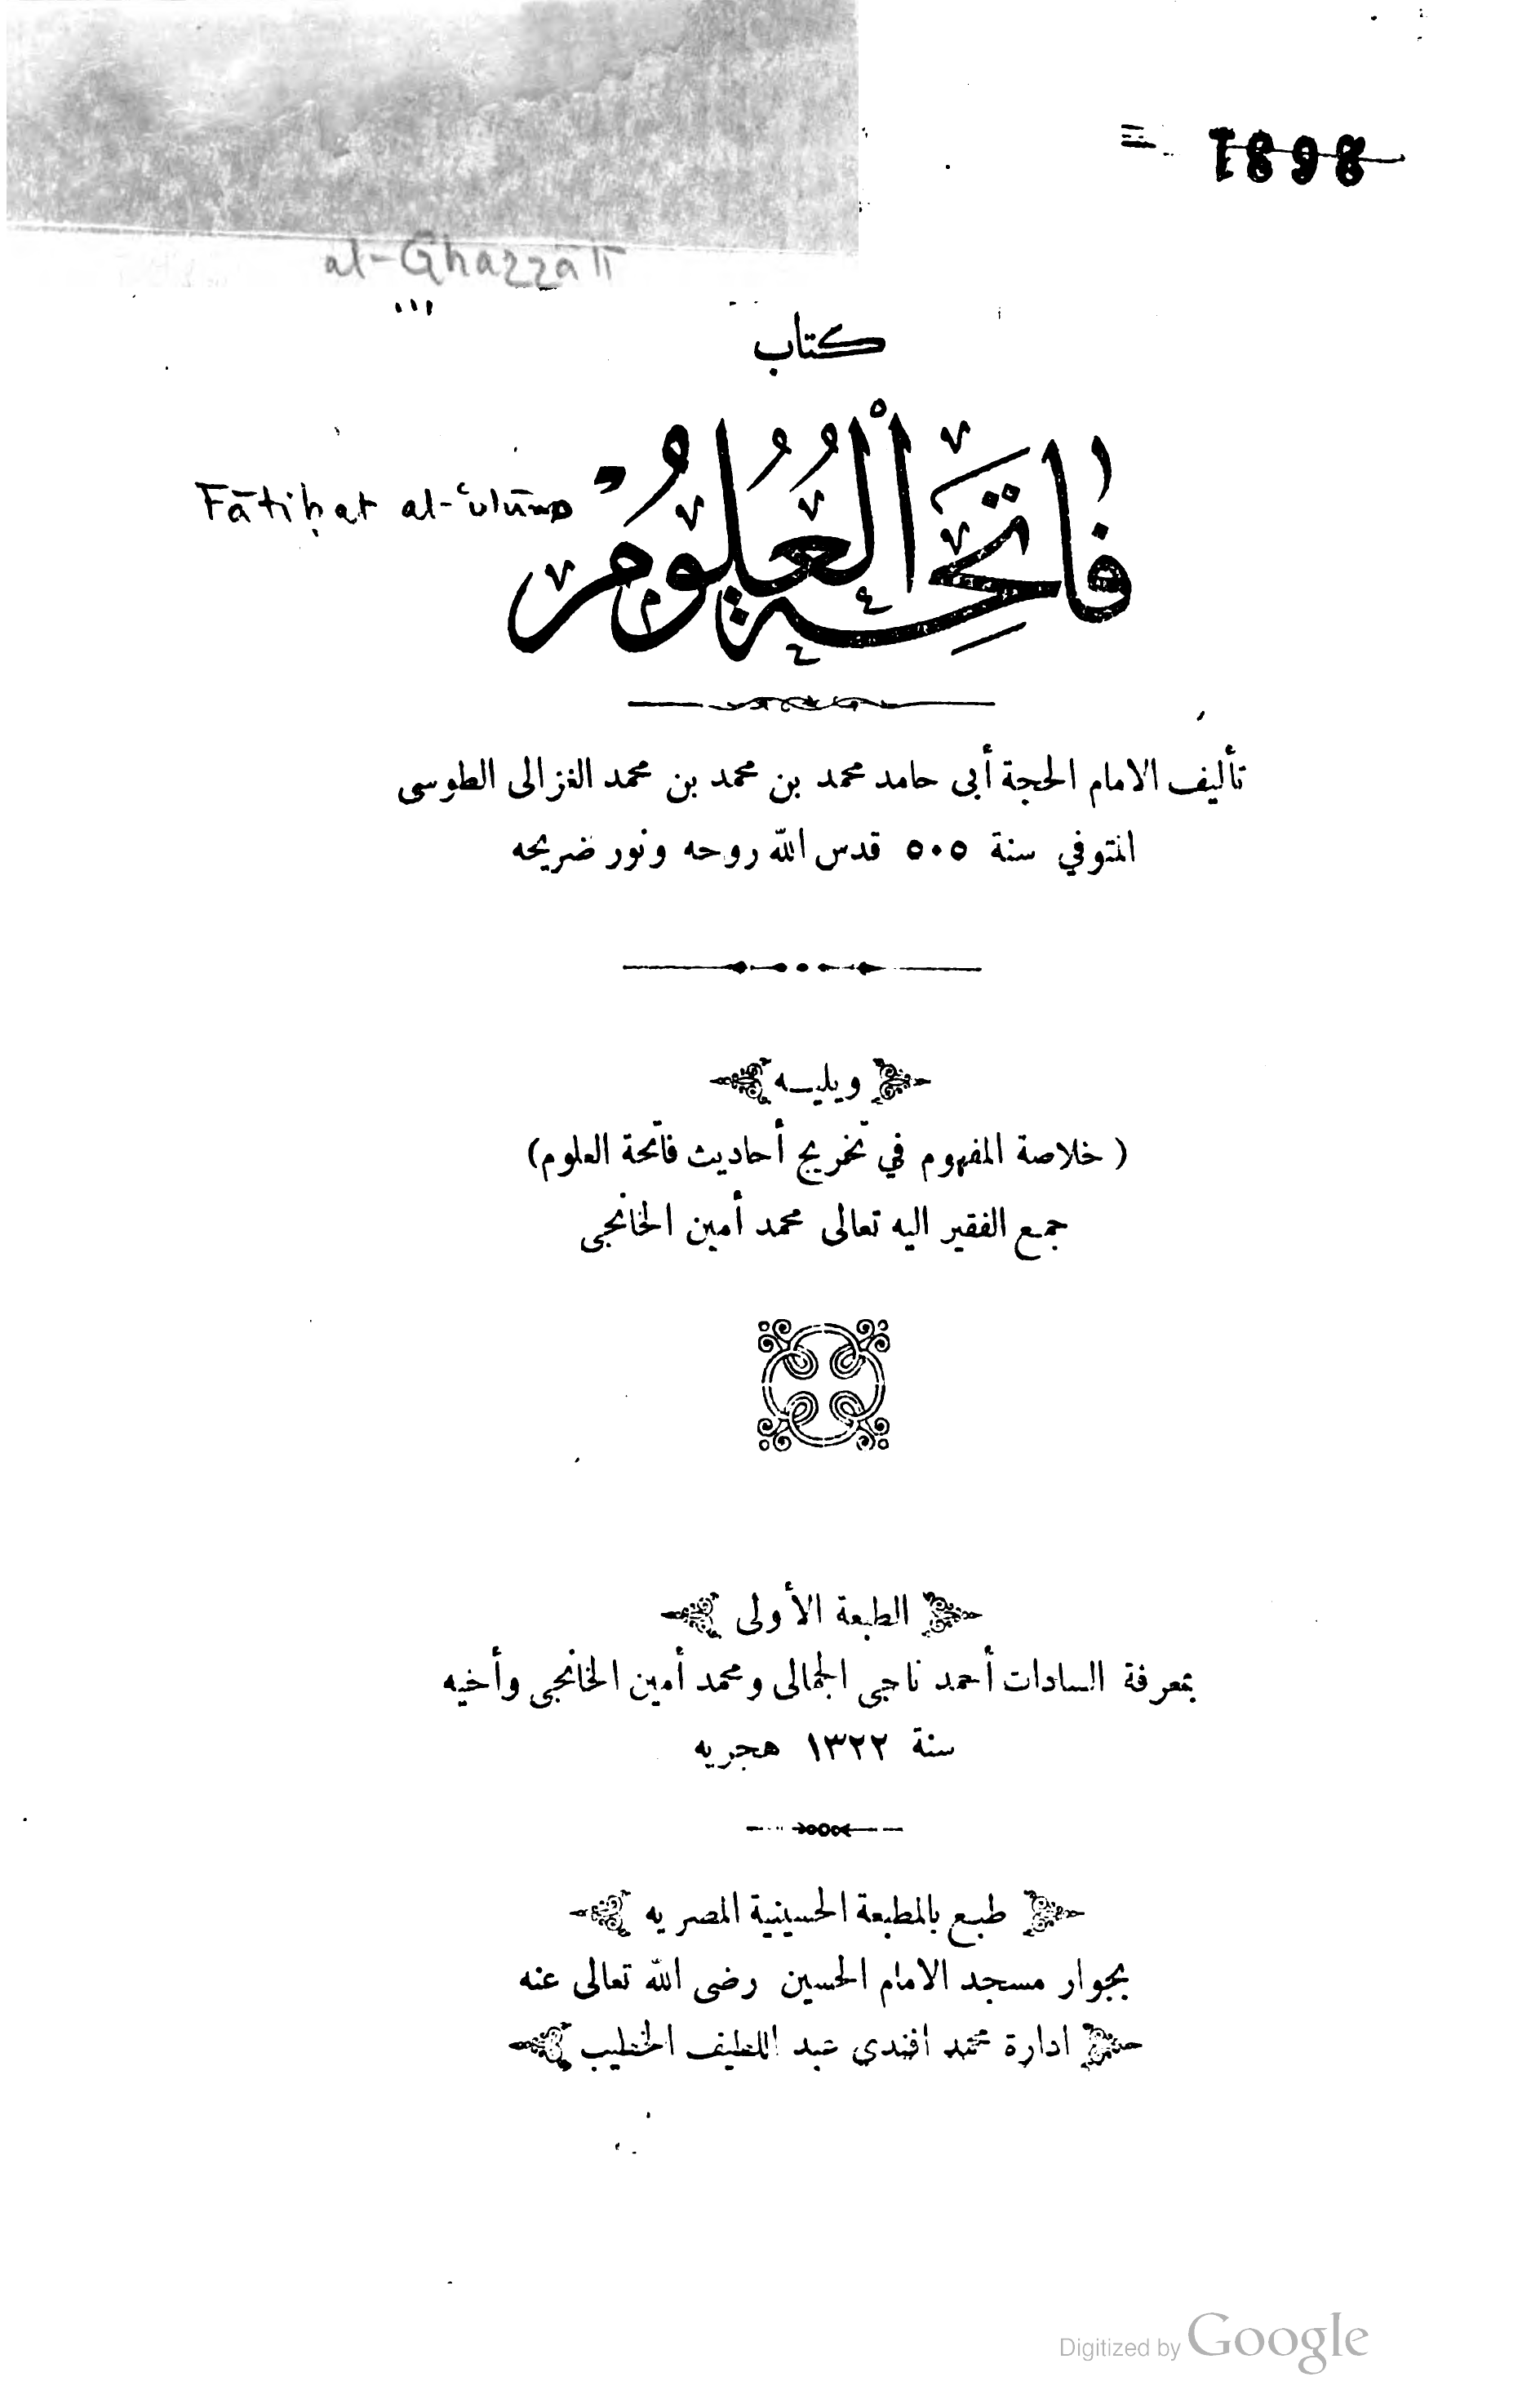 1898
al-Ghazzālī
كتاب
فَاتِحَةُ الْعُلُومُ
Fātiḥat al-ʿulūm
تأليف الامام الحجة أبى حامد محمد بن محمد بن محمد الغزالى الطوسى
المتوفي سنة ٥٠٥ قدس الله روحه ونور ضريحه
ويليه
( خلاصة المفهوم في تخريج أحاديث فاتحة العلوم)
جمع الفقير اليه تعالى محمد أمين الخانجى
الطبعة الأولى
بمعرفة السادات أحمد ناجى الجمالى ومحمد أمين الخانجى وأخيه
سنة ١٣٢٢ هجريه
طبع بالمطبعة الحسينية المصريه
بجوار مسجد الامام الحسين رضى الله تعالى عنه
ادارة محمد افندي عبد اللطيف الخطيب
Digitized by Google